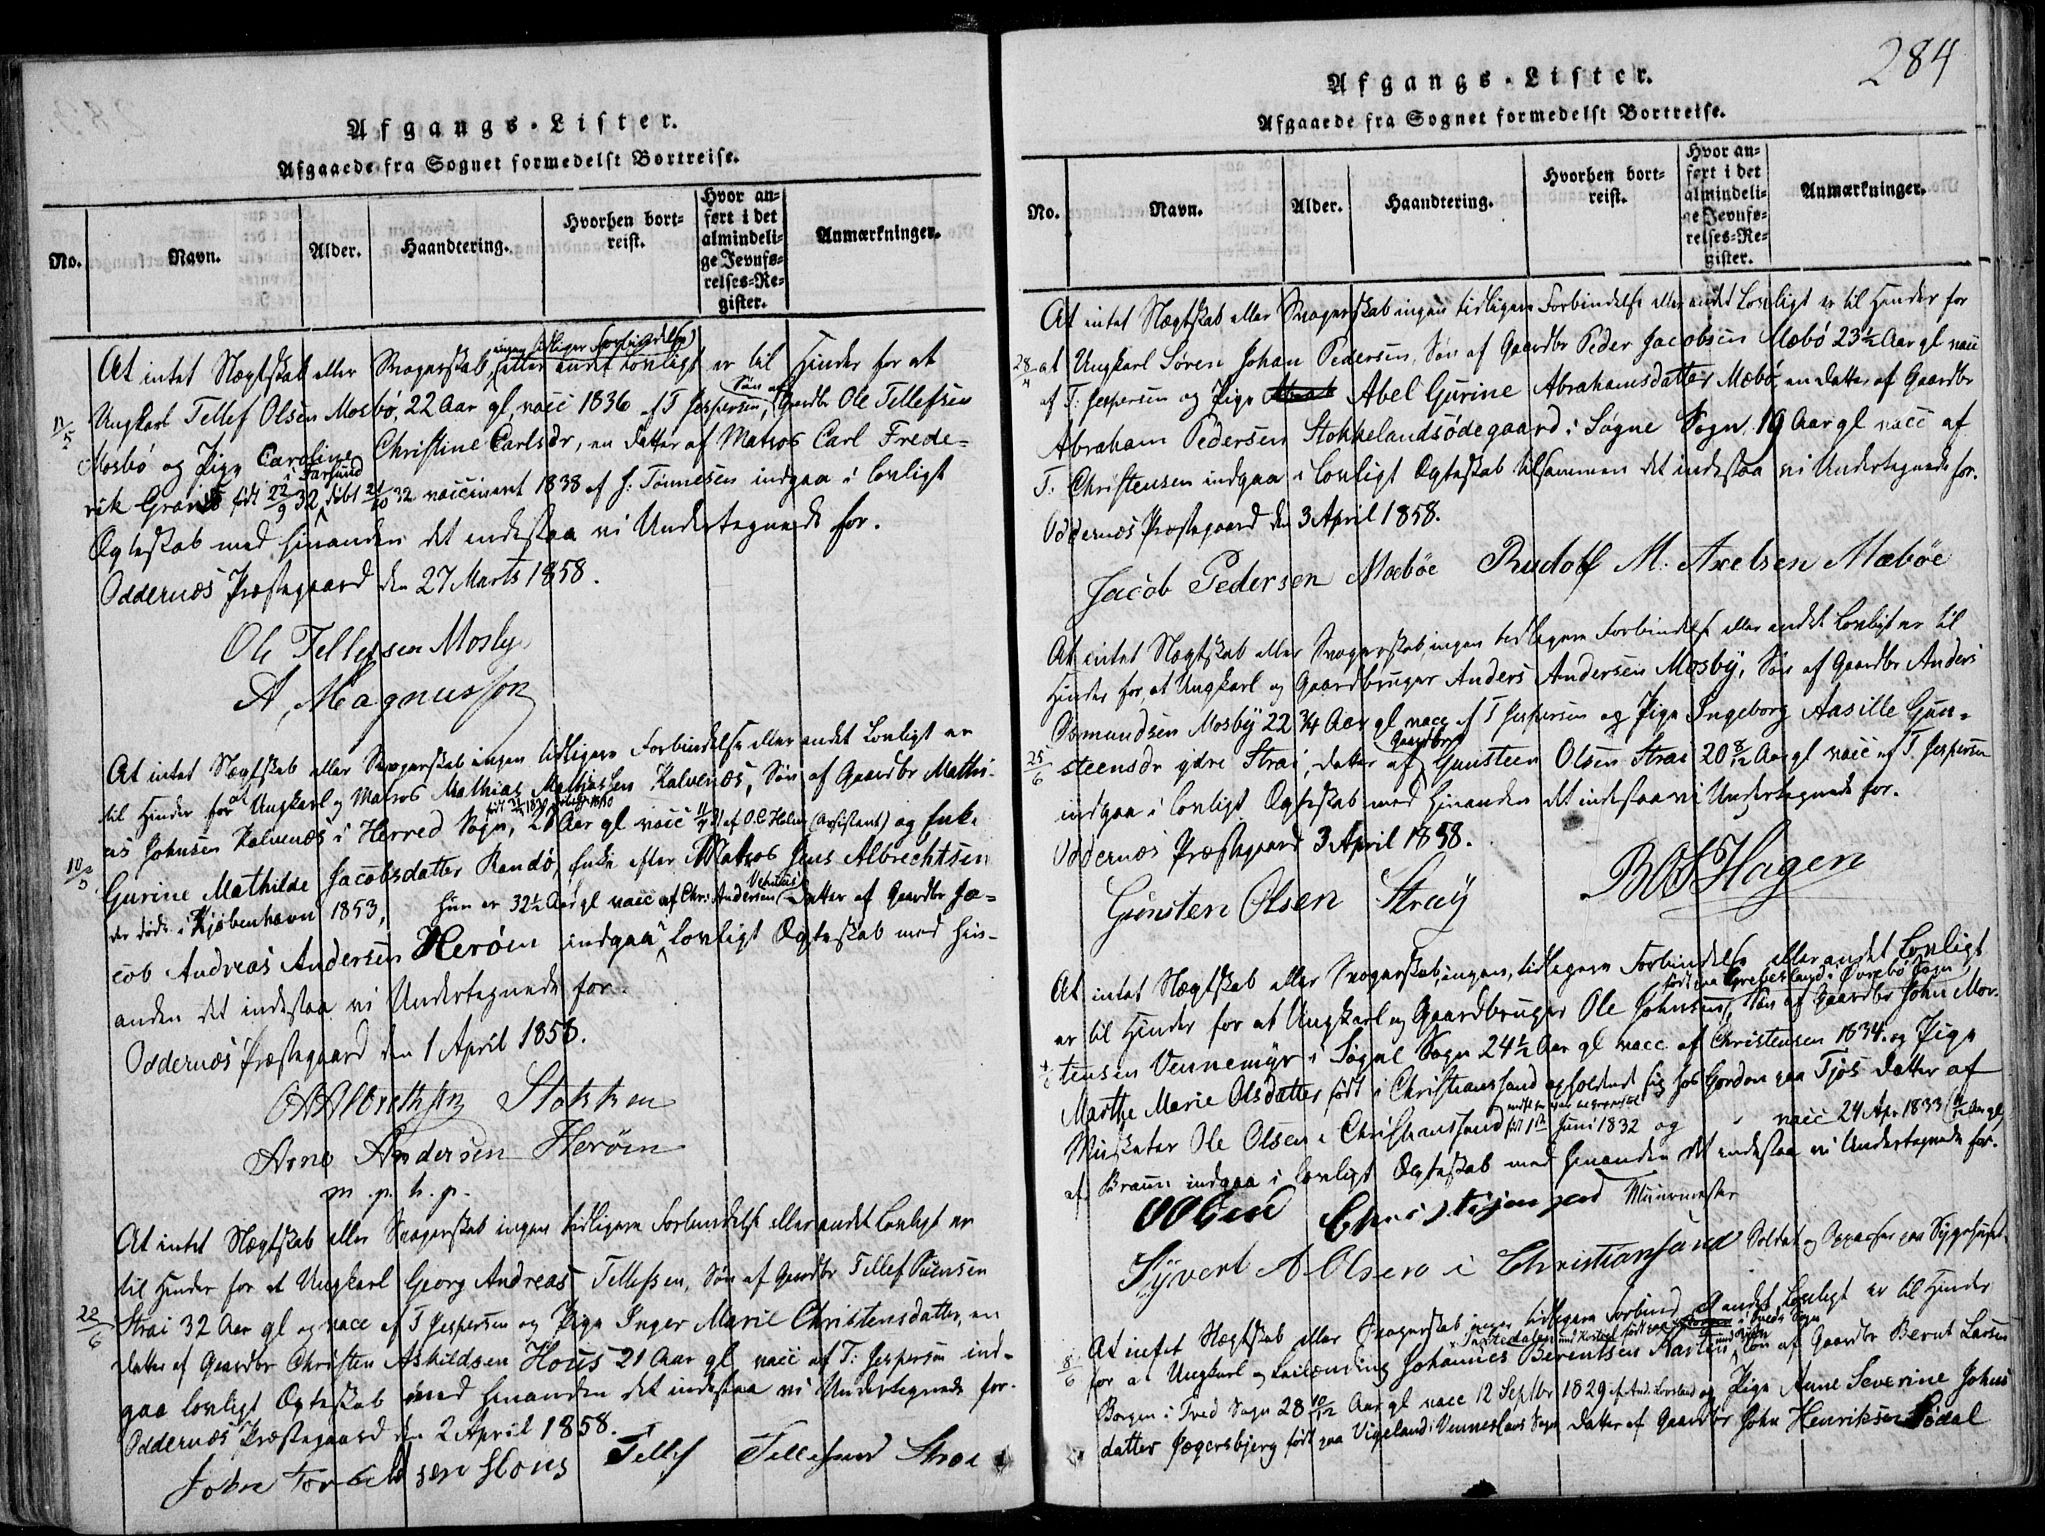 Afgangs-Lister.
Afgaaede fra Sognet formedelst Bortreise.
No.
Navn.
Alder.
Haandtering.
Hvorhen bort-
reist.
Hvor an-
ført i det
almindeli-
ge Jevnfø-
relses-Re-
gister.
Anmærkninger.
ingen tidligere Forbindelse
At intet Slægtskab eller Svogerskab, eller andet Lovligt er til Hinder for at
Ungkarl Tellef Olsen Mosbö, 22 Aar gl, vacc 1836 af T Jespersen, Søn af Gaardbr Ole Tellefsen
11/5
Mosbö og Pige Caroline Christine Carlsdr, en Datter af Matros Carl Frede-
rik født 22/9 32 i Farsund döbt 21/10 32 vaccineret 1838 af J: Tönnesen indgaa i lovligt
Ægteskab med hinanden det indestaa vi Undertegnede for.
Oddernæs Præstegaard den 27 Marts 1858.
Ole Tellefsen Mosby
A, Magnusson
At intet Slægtskab eller Svogerskab ingen tidligere Forbindelse eller andet Lovligt er
til Hinder for at Ungkarl og Matros Mathias Mathiassen Kalvenæs, Søn af Gaardbr Mathi-
as Johnsen Kalvenæs i Herred Sogn, Aar gl vacc af O. C. Holm (Assistent) og Enke
10/5
Gurine Mathilde Jacobsdatter Randö, Enke efter Matros Jens Albrechtsen
der døde i Kjøbenhavn 1853, Hun er 32½ Aar gl vacc af Chr: Andersen Datter af Gaardbr Ja-
cob Andreas Andersen Heröen indgaa i lovligt Ægteskab med hin-
anden det indestaa vi Undertegnede for.
Oddernæs Præstegaard den 1 April 1858.
Stokken
Arne Andersen Heröen
m. p. h. p.
At intet Slægtskab eller Svogerskab ingen tidligere Forbindelse eller andet Lovligt er
til Hinder for at Ungkarl Georg Andreas Tellefsen, Søn af Gaardbr Tellef Svensen
22/6
Strai 32 Aar gl og vacc af T Jespersen og Pige Inger Marie Christensdatter, en
Datter af Gaardbr Christen Askildsen Hous 21 Aar gl, vacc af T: Jespersen ind-
gaa lovligt Ægteskab med hinanden det indestaa vi Undertegnede for.
Oddernæs Præstegaard d 2 April 1858.
Hous Tellef Tellefsen Strai
284
Afgangs-Lister.
Afgaaede fra Sognet formedelst Bortreise.
No.
Navn.
Alder.
Haandtering.
Hvorhen bort-
reist.
Hvor an-
ført i det
almindeli-
ge Jevnfø-
relses-Re-
gister.
Anmærkninger.
At intet Slægtskab eller Svogerskab ingen tidligere Forbindelse eller andet Lovligt er til Hinder for
28/4
at Ungkarl Søren Johan Pedersen, Søn af Gaardbr Peder Jacobsen Mæbö 23½ Aar gl vacc
af T: Jespersen og Pige Abel Gurine Abrahamsdatter Mæbö, en Datter af Gaardbr
Abraham Pedersen Stokkelandsödegaard i Søgne Sogn, 19 Aar gl vacc af
T: Christensen indgaa i lovligt Ægteskab tilsammen det indestaa vi Undertegnede for.
Oddernæs Præstegaard den 3 April 1858.
Jacob Pedersen Mæböe Rudolf M. Axelsen Mæböe
At intet Slægtskab eller Svogerskab, ingen tidligere Forbindelse eller andet Lovligt er til
Hinder for, at Ungkarl og Gaardbruger Anders Andersen Mosby, Søn af Gaardbr Anders
Osmundsen Mosby 22 3/4 Aar gl vacc af T Jespersen og Pige Ingeborg Aasille Gun-
25/6
steensdr ydre Strai, Datter af Gaardbr Gunsteen Olsen Strai 20 8/12 Aar gl vacc af T. Jespersen
indgaa i lovligt Ægteskab med hinanden det indestaa vi Undertegnede for.
Oddernæs Præstegaard 3 April 1858.
Gunsten Olsen Stray
Hagen
At intet Slægtskab eller Svogerskab, ingen, tidligere Forbindelse eller andet Lovligt
født paa i Øvrebö Sogn
er til Hinder for at Ungkarl og Gaardbruger Ole Johnsen, Søn af Gaardbr John Mor-
tensen Vennemyr i Søgne Sogn 24½ Aar gl vacc af Christensen 1834. og Pige
Marthe Marie Olsdatter født i Christianssand opholdende sig hos Gordon paa Tjös Datter af
Musketer Ole Olsen i Christianssand født 1te Juni 1832 og vacc 24 Apr 1833
af Braun indgaa i lovligt Ægteskab med hinanden det indestaa vi Undertegnede for.
Olsen Murmester
Syvert A Olsen i Christiansand Soldat og Oppasser paa Sygehuset
At intet Slægtskab eller Svogerskab ingen tidligere Forbind andet Lovligt er til Hinder
8/6
for at Ungkarl og Johannes Berentsen Søn af Gaardbr Bernt Larsen
Borgen i Tved Sogn 28 10/12 Aar gl vacc 12 Septbr 1829 af og Pige Anne Severine Johns
datter Jægersbjerg født paa Vigeland i Vennesla Sogn Datter af Gaardbr John Henriksen Södal